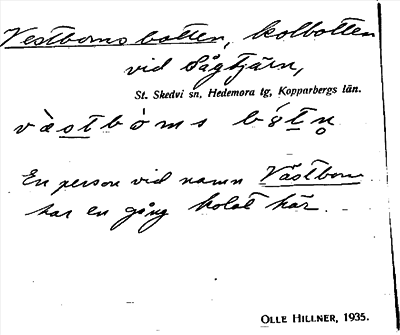 Vestboms botten, kolbotten
vid Sågtjärn,
St. Skedvi sn, Hedemora tg, Kopparbergs län.
En person vid namn Västbom
har en gång kolat här.
OLLE HILLNER, 1935.